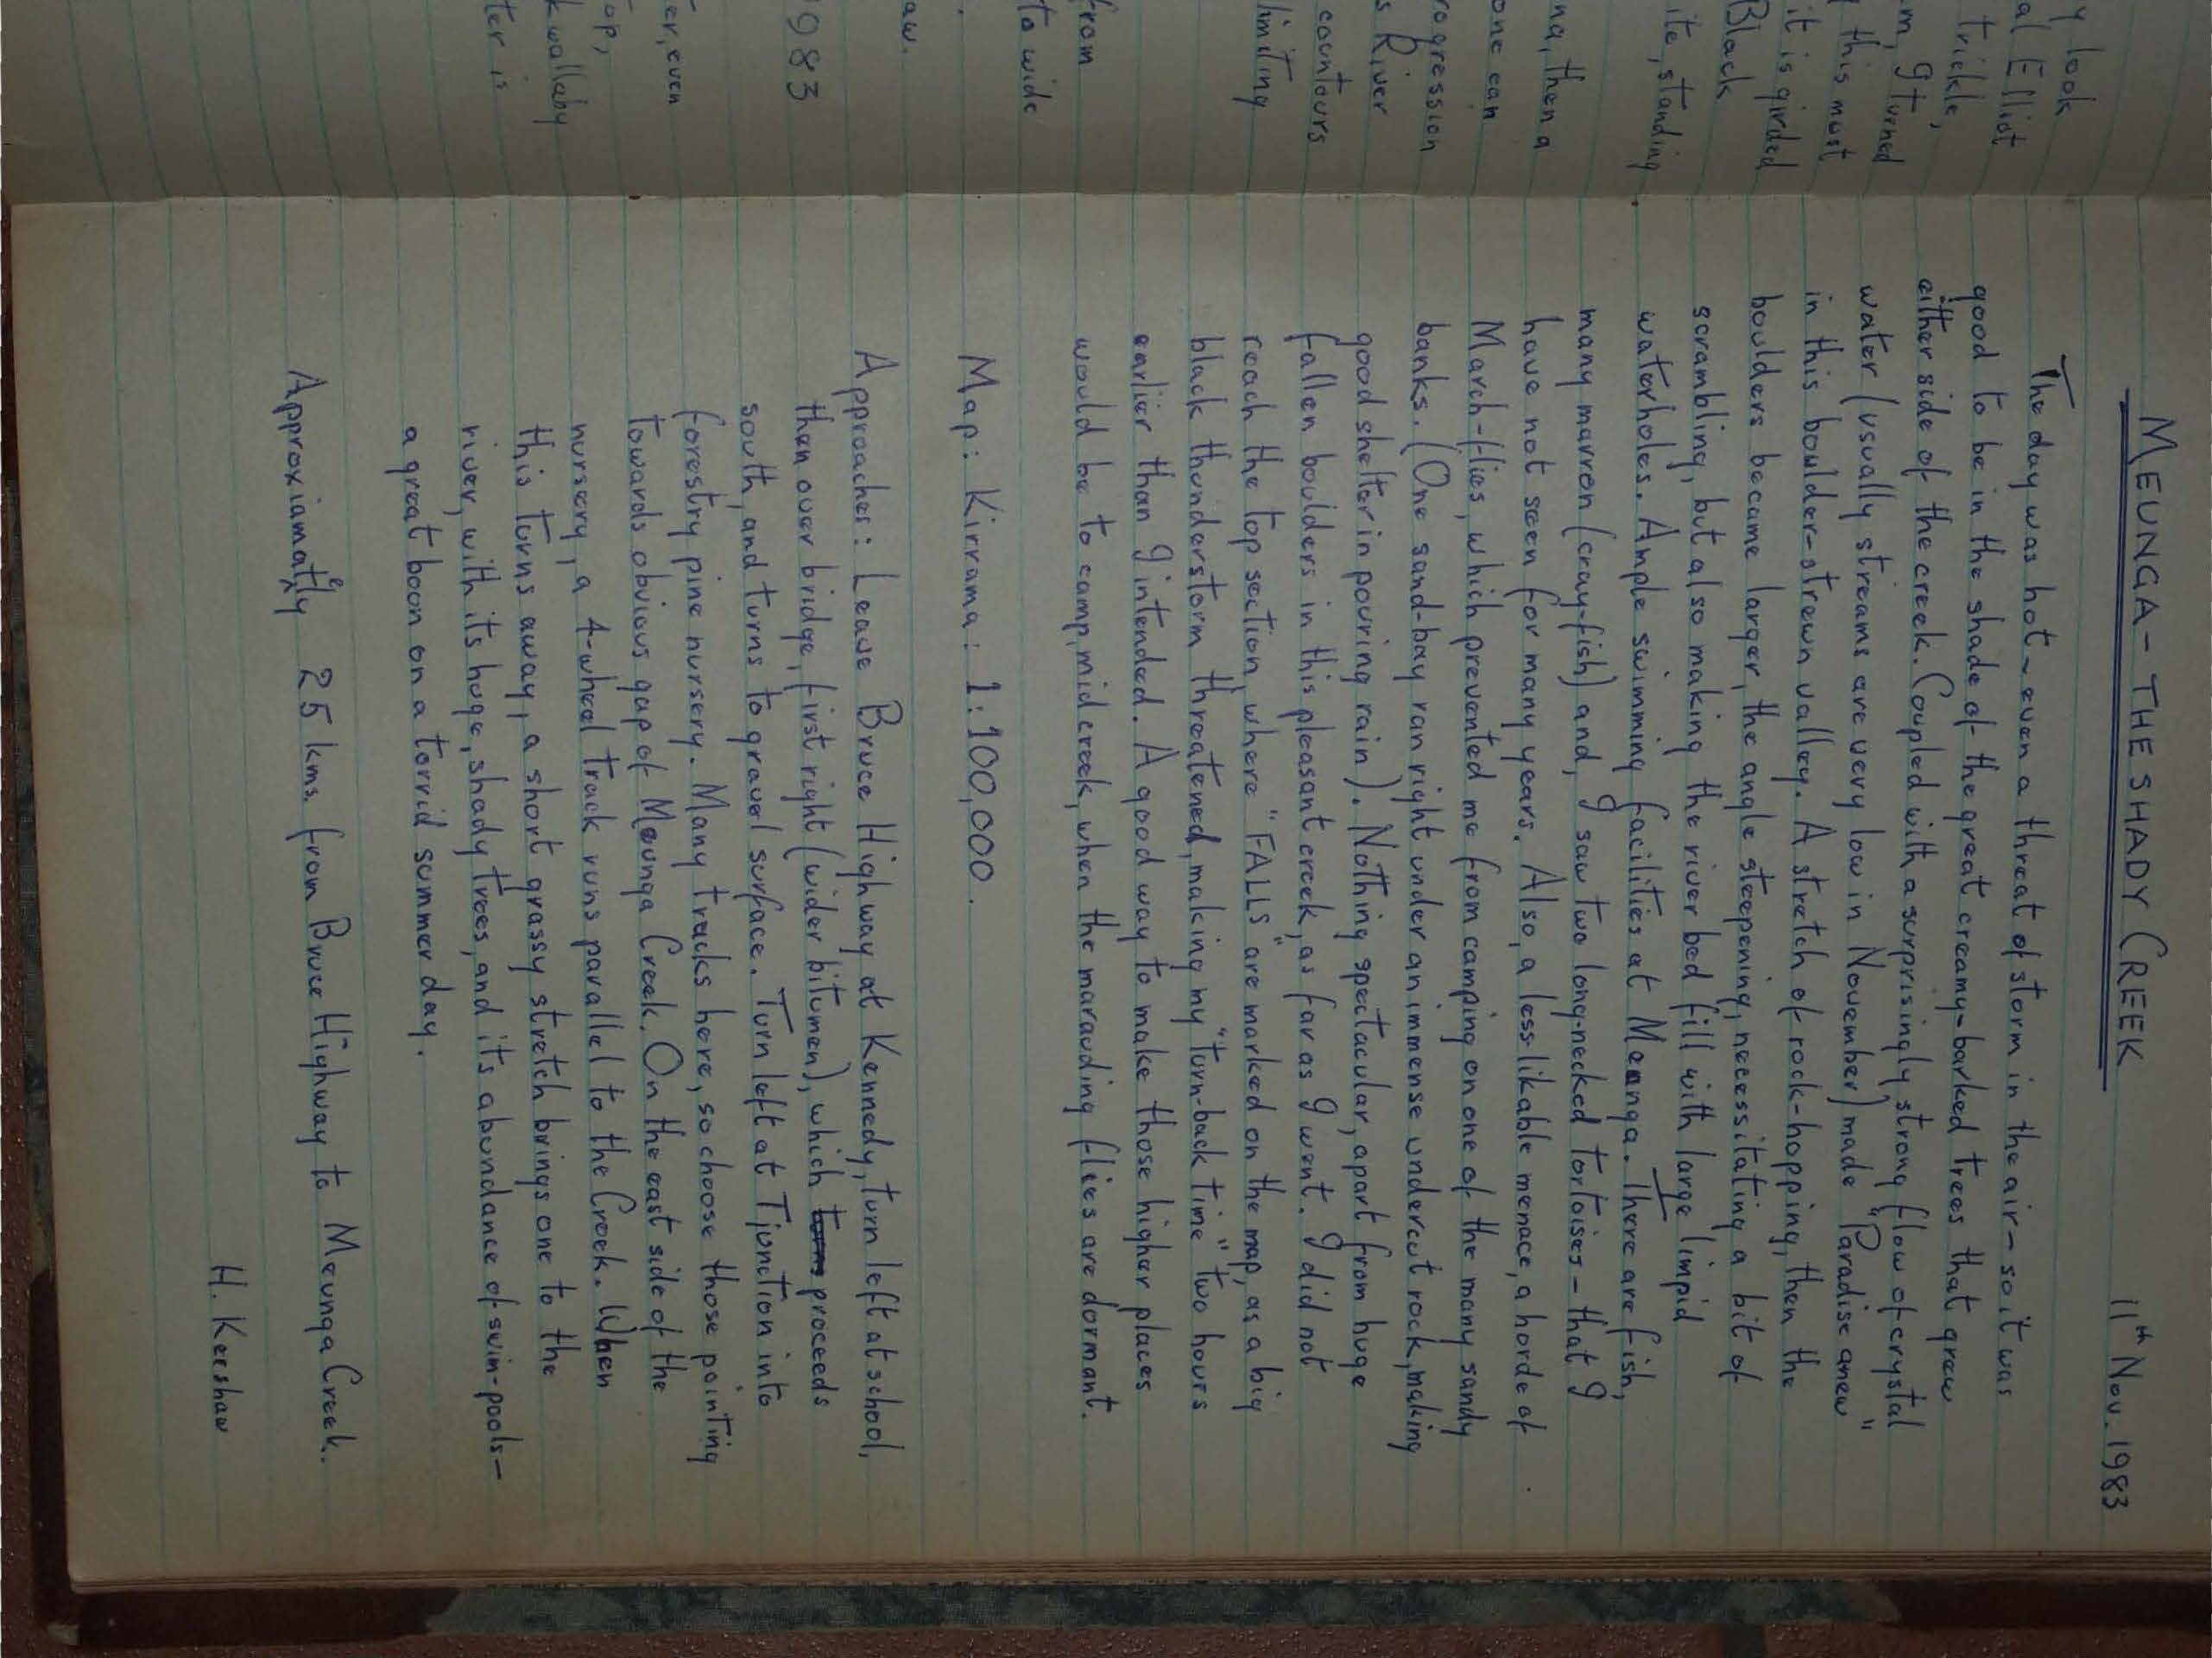 y look
al Elliot
trickle,
m, I turned
this must
it is girded
Black
ite, standing
na, then a
one can
rogression
s River
contours
limiting
from
to wide
.
aw.
983
er, even
op,
kwallaby
ter is
MEUNGA - THE SHADY CREEK 11th Nov. 1983
The day was hot - even a threat of storm in the air - so it was
good to be in the shade of the great creamy-barked trees that grew
either side of the creek. Coupled with a surprisingly strong flow of crystal
water (usually streams are very low in November) made "Paradise anew"
in this boulder-strewn valley. A stretch of rock-hopping, then the
boulders became larger, the angle steepening, necessitating a bit of
scrambling, but also making the river bed fill with large limpid
waterholes. Ample swimming facilities at Meunga. There are fish,
many marron (cray-fish) and, I saw two long-necked tortoises - that I
have not seen for many years. Also, a less-likable menace, a horde of
March-flies, which prevented me from camping on one of the many sandy
banks. (One sand-bay ran right under an immense undercut rock, making
good shelter in pouring rain). Nothing spectacular, apart from huge
fallen boulders in this pleasant creek, as far as I went. I did not
reach the top section, where "FALLS" are marked on the map, as a big
black thunderstorm threatened, making my "turn-back time" two hours
earlier than I intended. A good way to make those higher places
would be to camp, mid creek, when the marauding flies are dormant.
Map: Kirrama: 1:100,000.
Approaches: Leave Bruce Highway at Kennedy, turn left at school,
then over bridge, first right (wider bitumen), which turns proceeds
south, and turns to gravel surface. Turn left at T junction into
forestry pine nursery. Many tracks here, so choose those pointing
towards obvious gap of Meunga Creek. On the east side of the
nursery, a 4-wheel track runs parallel to the Creek. When
this turns away, a short grassy stretch brings one to the
river, with its huge, shady trees, and its abundance of swim-pools-
a great boon on a torrid summer day.
Approxiamately 25 kms. from Bruce Highway to Meunga Creek.
H. Kershaw